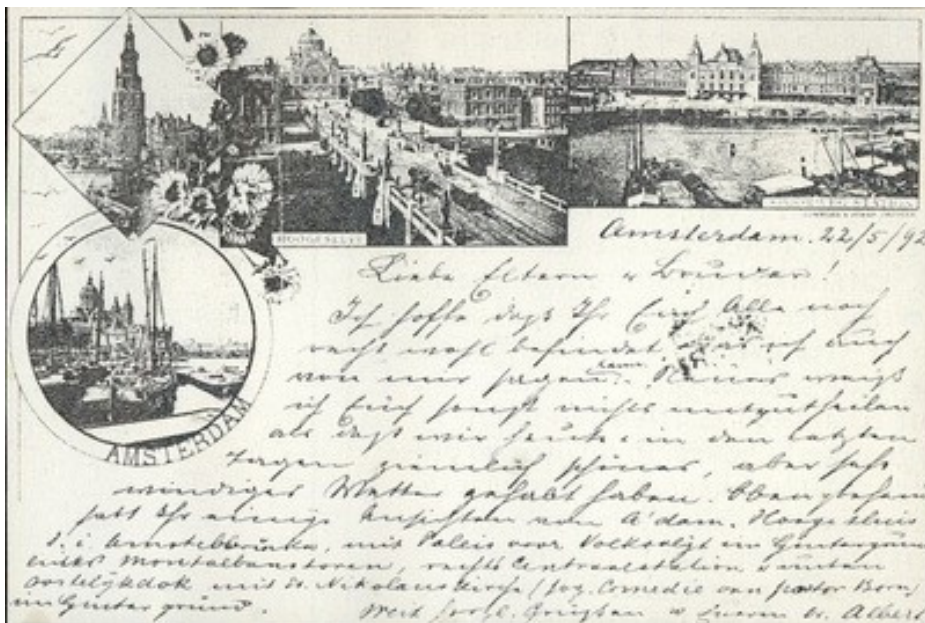 HOOGESLUIS
AMSTERDAM
Amsterdam. 22/5/92
Liebe Eltern u Bruder!
Ich hoffe daß Ihr Euch Alle noch
recht wohl befindet, was ich auch
von mir sagen kann. Neues weiß
ich Euch sonst nichts mitzutheilen
als daß wir heute u in den letzten
Tagen ziemlich schönes, aber sehr
windiges Wetter gehabt haben. Obenstehend
seht Ihr einige Ansichten von A'dam. Hoogesluis
d. i. Amstelbrücke, mit Paleis voor Volksvlijt im Hintergrund
links Montalbanstoren, rechts Centraalstation u unten
oostelijkdok mit St. Nikolauskirche (sog. Comedie van pastor Born)
im Hintergrund.
Mit herzl. Grüßen u Euerem br. Albert